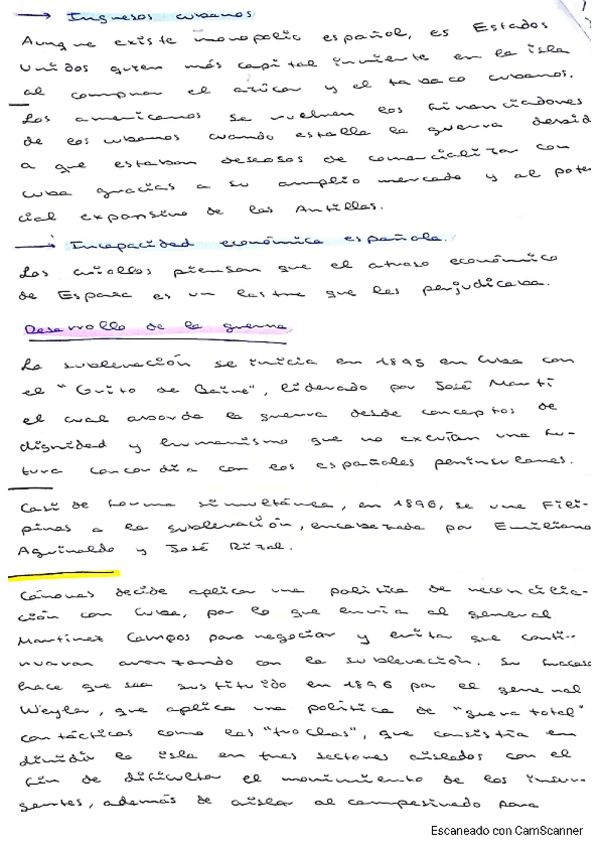 → Ingresos cubanos
Aunque existe monopolio español, es Estados
Unidos quien más capital invierte en la isla
al comprar el azúcar y el tabaco cubanos.
Los americanos se vuelven los financiadores
de los cubanos cuando estalla la guerra debid
a que estaban deseosos de comercializar con
Cuba gracias a su amplio mercado y al poten
cial expansivo de las Antillas.
→ Incapacidad económica española.
Los criollos piensan que el atraso económico
de España es un lastre que les perjudicaba.
Desarrollo de la guerra
La sublevación se inicia en 1895 en Cuba con
el "Grito de Baire", liderado por José Martí
el cual aborda la guerra desde conceptos de
dignidad y humanismo que no excuían una fu-
tura concordia con los españoles peninsulares.
Casi de forma simultánea, en 1896, se une Fili-
pinas a la sublevación, encabezada por Emiliano
Aguinaldo y José Rizal.
Cánovas decide aplicar una política de reconcilia-
ción con Cuba, por lo que envía al general
Martínez Campos para negociar y evitar que conti-
nuaran avanzando con la sublevación. Su fracaso
hace que sea sustituido en 1896 por el general
Weyler, que aplica una política de "guerra total"
con tácticas como las "trochas", que consistía en
dividir la isla en tres sectores aislados con el
fin de dificultar el movimiento de los insur-
gentes, además de aislar al campesinado para
Escaneado con CamScanner